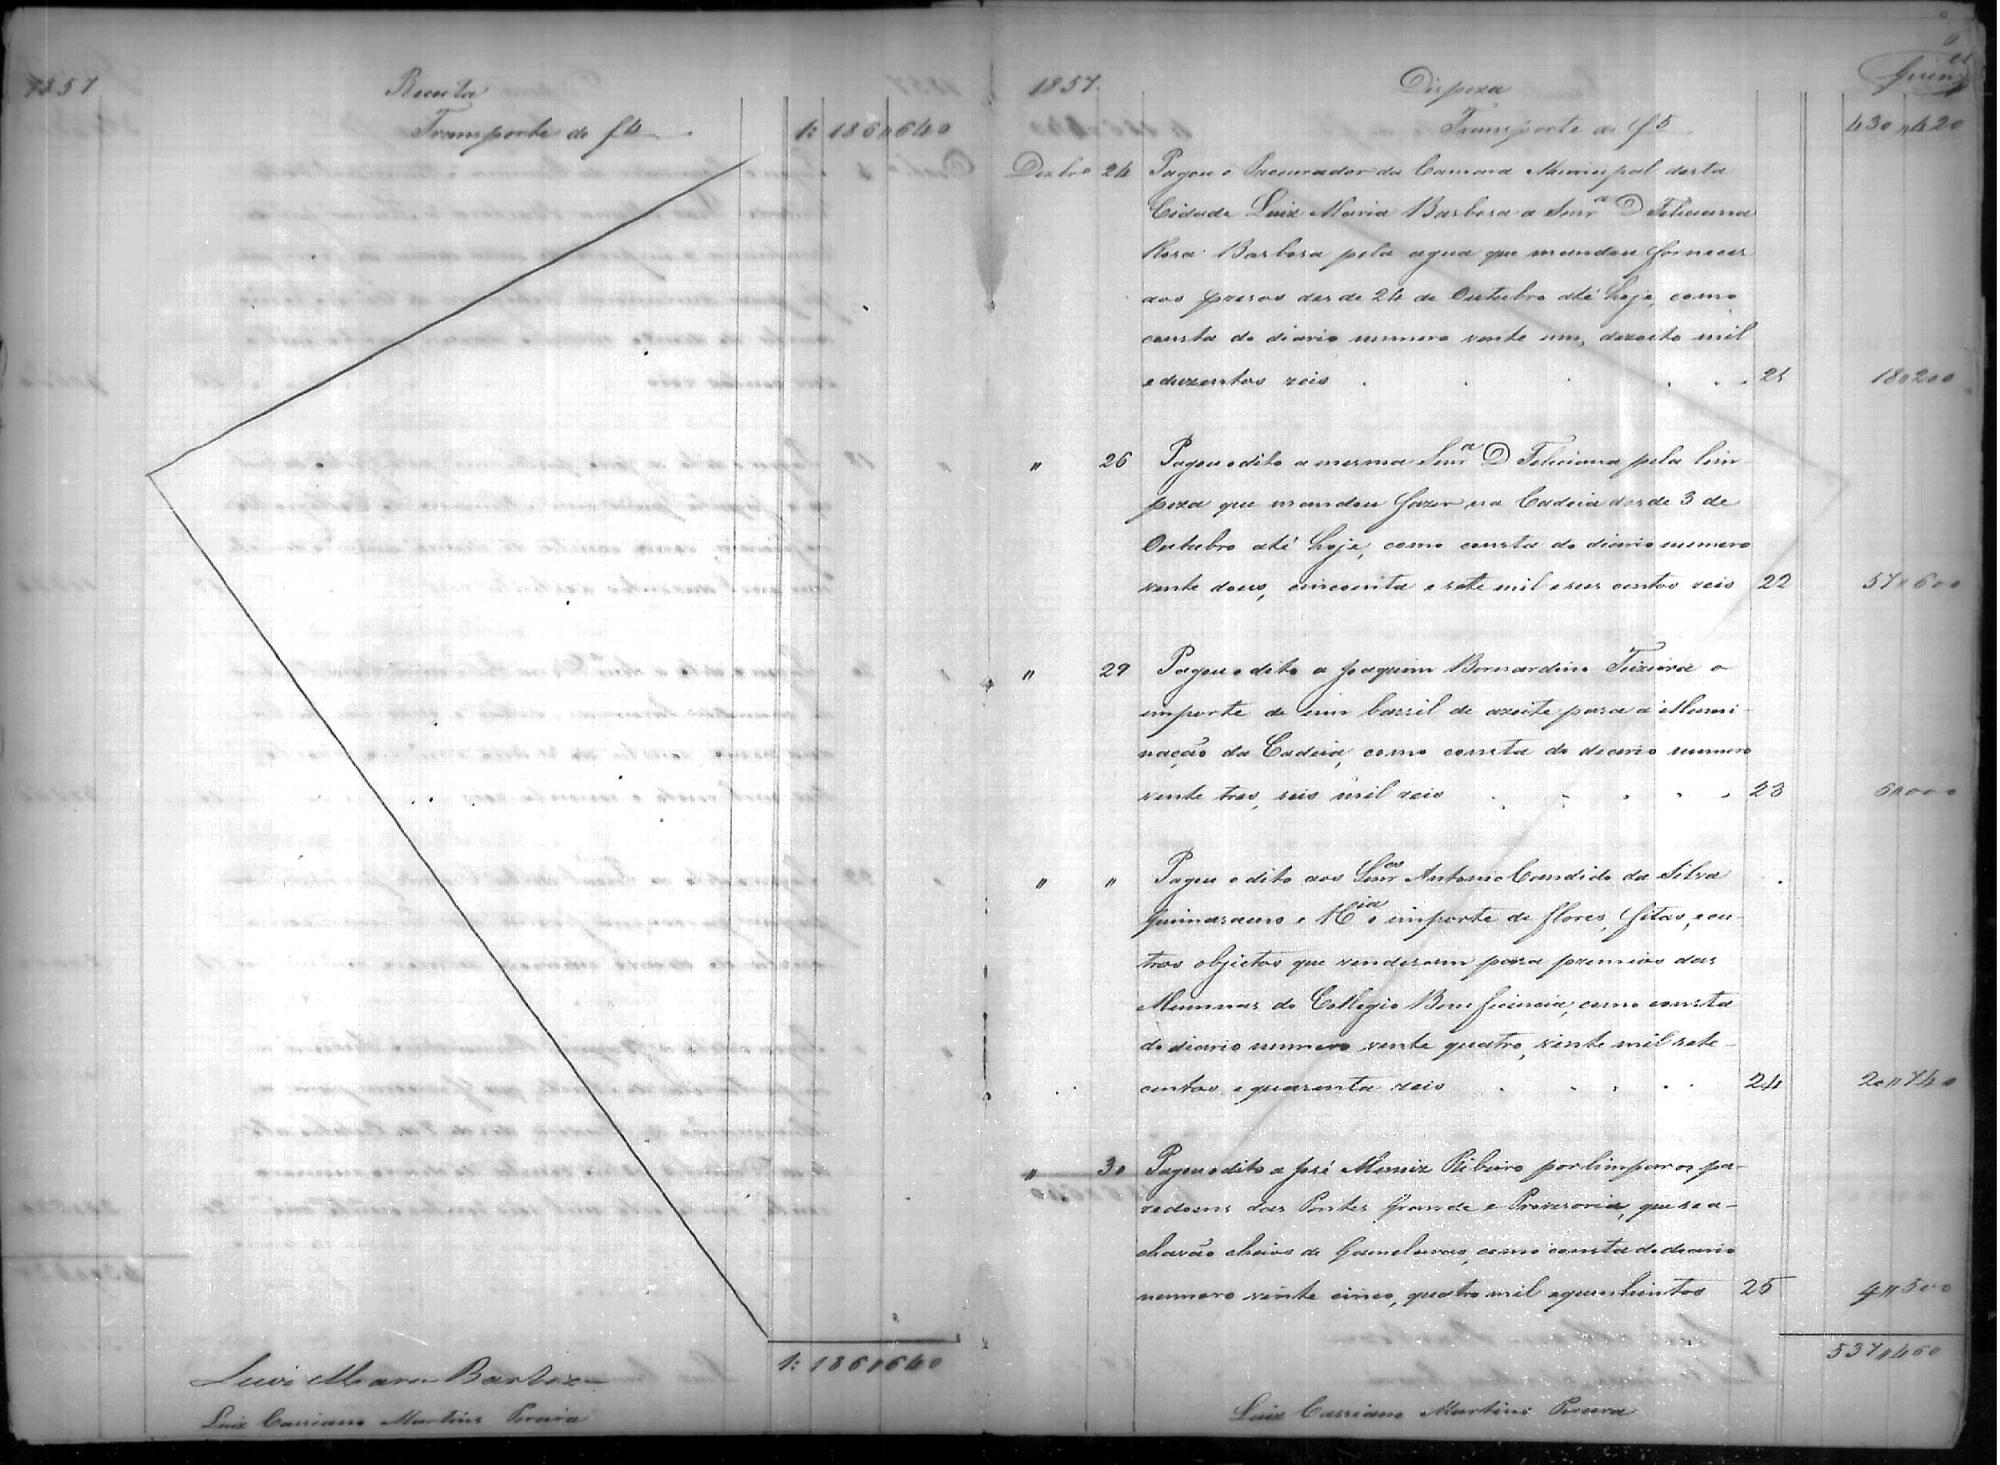 1857
Receita
Transporte de f 4
1: 186〃640
1: 186〃640
Luiz Maria Barboza
Luiz Cassiano Martins Pereira
1857.
Dispeza
Transporte de f 5
430〃420
Dezbro 24 Pagou o Procurador da Camara Municipal desta
Cidade Luiz Maria Barbosa a Senrª D Feliciana
Rosa Barbosa pela agua que mandou fornecer
aos prezos desde 24 de Outubro até hoje, como
consta do diario numero vente um, dezoito mil
e duzentos reis . . . . . 21 18〃200
〃 26 Pagou o dito a mesma Senrª D Feliciana pela lim-
peza que mandou fazer na Cadeia desde 3 de
Outubro até hoje, como consta do diario numero
vente dous, cincoenta e sete mil e seis centos reis 22 57〃600
〃 29 Pagou o dito a Joaquim Bernardino Teixeira o
importe de um barril de azeite para a illumi-
nação da Cadeia, como consta do diario numero
vente tres, seis mil reis . . . . . 23 6〃000
〃 〃 Pagou o dito aos Senres Antonio Candido da Silva
Guimaraens e Cia o importe de flores, fitas, e ou-
tros objectos que venderam para premios das
Alumnas do Collegio Beneficencia, como consta
do diario numero vente quatro, vinte mil sete-
centos e quarenta reis . . . . 24 20〃740
〃 30 Pagou o dito a José Muniz Ribeiro por limpar os pa-
redoens das Pontes Grande e Provisoria, que se a-
chavão cheios de Gamelleiras, como consta do diario
numero vinte cinco, quatro mil e quinhentos 25 4〃500
537〃460
Luiz Cassiano Martins Pereira